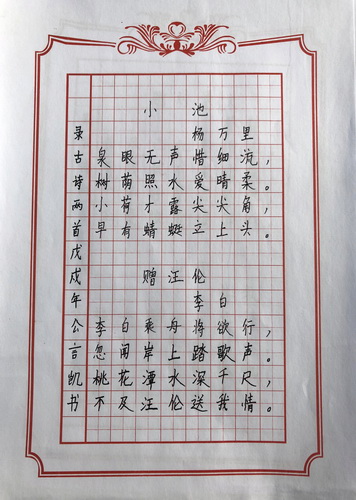 小池
杨万里
泉眼无声惜细流，
树荫照水爱晴柔。
小荷才露尖尖角，
早有蜻蜓立上头。
赠汪伦
李白
李白乘舟将欲行，
忽闻岸上踏歌声。
桃花潭水深千尺，
不及汪伦送我情。
录古诗两首戊戌年公言凯书